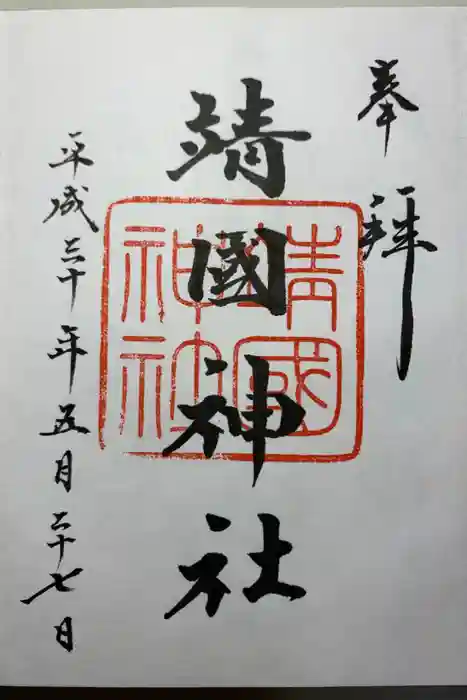 奉拝
靖國神社
靖國
神社
平成三十年五月二十七日